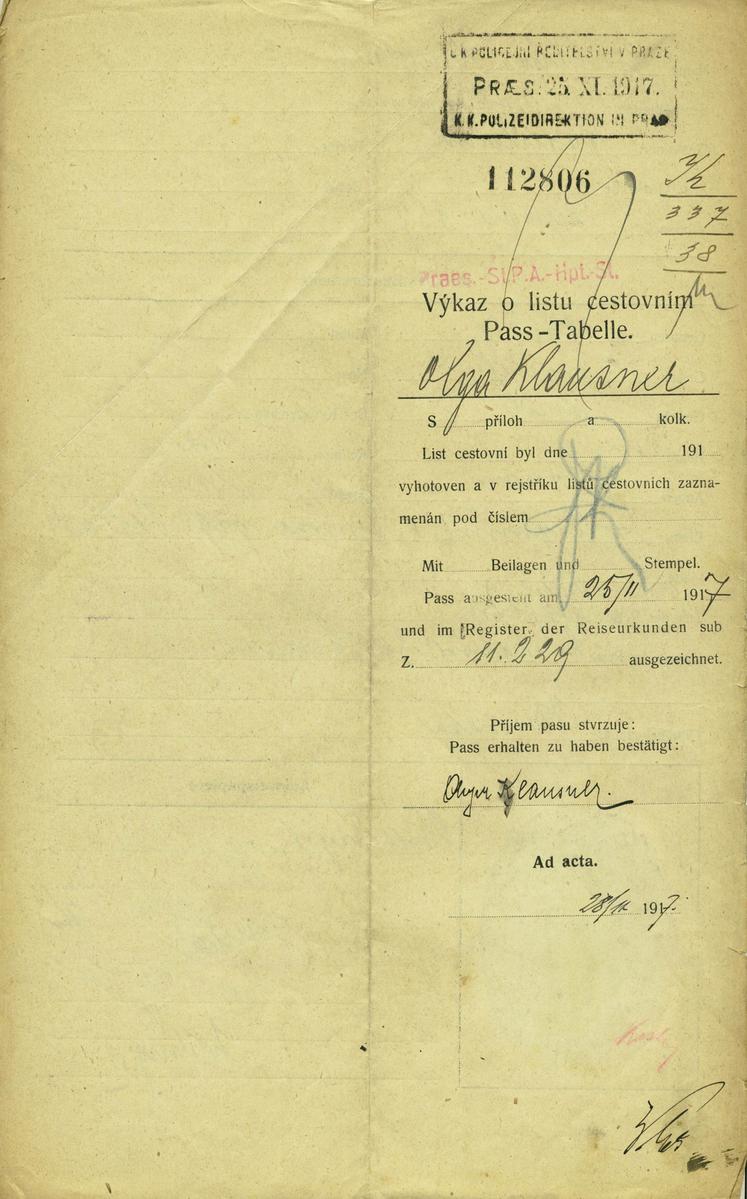 C.K. POLICEJNÍ ŘEDITELSTVÍ V PRAZE
PRÆS. 25. XI. 1917.
K.K. POLIZEIDIREKTION IN PRAG
112806
K
337
38
Praes.-St.P.A.-Hpt.-St.
Výkaz o listu cestovním
Pass-Tabelle.
Olga Klausner
S příloh a kolk.
List cestovní byl dne 191
vyhotoven a v rejstříku listů cestovních zazna-
menán pod číslem
Mit Beilagen und Stempel.
Pass ausgestellt am 25/11 1917
und im Register der Reiseurkunden sub
Z. 11.229 ausgezeichnet.
Příjem pasu stvrzuje:
Pass erhalten zu haben bestätigt:
Olga Klausner.
Ad acta.
28/11 1917.